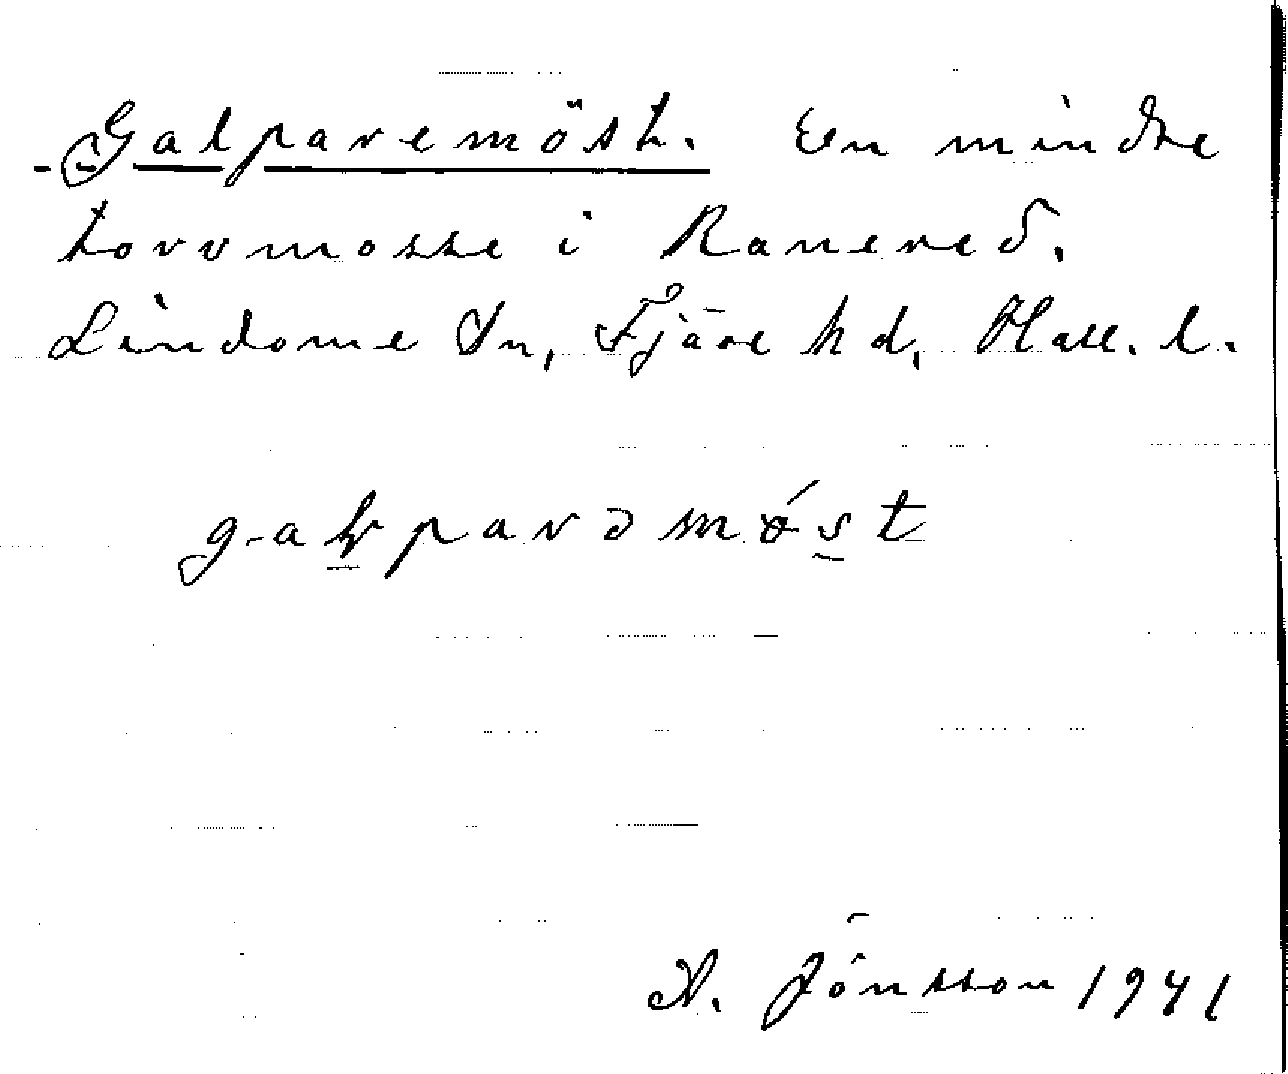 Galparemöst. En mindre
torvmosse i Ranered.
Lindome Sn, Fjäre hd, Hall. l.
A. Jönsson 1941